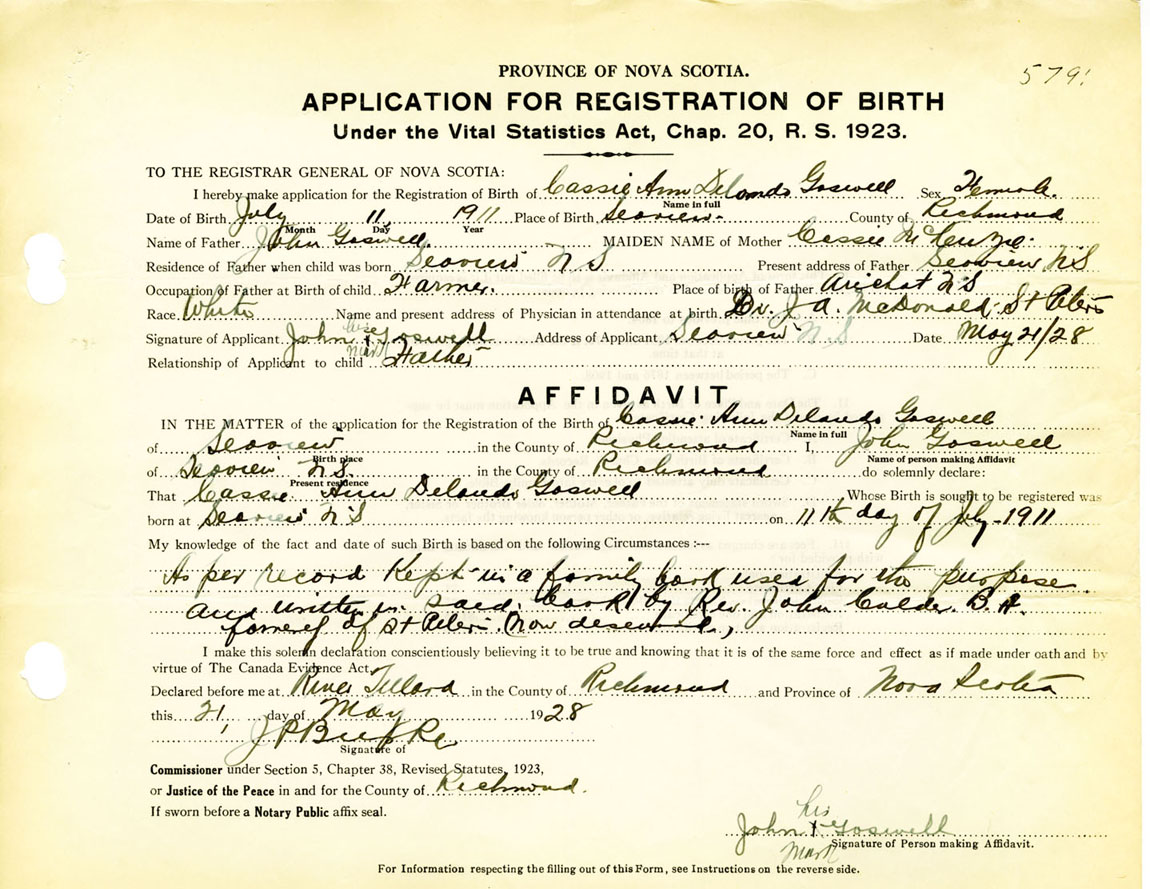 PROVINCE OF NOVA SCOTIA.
579
APPLICATION FOR REGISTRATION OF BIRTH
Under the Vital Statistics Act, Chap. 20, R. S. 1923.
TO THE REGISTRAR GENERAL OF NOVA SCOTIA:
I hereby make application for the Registration of Birth of Cassie Ann Delando Goswell Sex Female
Name in full
Date of Birth July 11 1911 Place of Birth Seaview County of Richmond
Month Day Year
Name of Father John Goswell MAIDEN NAME of Mother Cassie McKenzie
Residence of Father when child was born Seaview N S Present address of Father Seaview N S
Occupation of Father at Birth of child Farmer. Place of birth of Father Arichat N S
Race White Name and present address of Physician in attendance at birth Dr. J. A. McDonald St Peters
Signature of Applicant John his x mark Goswell Address of Applicant Seaview N S Date May 21/28
Relationship of Applicant to child Father
AFFIDAVIT
IN THE MATTER of the application for the Registration of the Birth of Cassie Ann Delando Goswell
Name in full
of Seaview in the County of Richmond I, John Goswell
Birth place Name of person making Affidavit
of Seaview N.S. in the County of Richmond do solemnly declare:
Present residence
That Cassie Ann Delando Goswell Whose Birth is sought to be registered was
born at Seaview N S on 11th day of July 1911
My knowledge of the fact and date of such Birth is based on the following Circumstances :---
As per record Kept in a family book used for the purpose
and written in said book by Rev. John Calder B.A.
formerly of St Peters. (Now deseased,)
I make this solemn declaration conscientiously believing it to be true and knowing that it is of the same force and effect as if made under oath and by
virtue of The Canada Evidence Act.
Declared before me at River Tillard in the County of Richmond and Province of Nova Scotia
this 21, day of May 1928
J P Burke
Signature of
Commissioner under Section 5, Chapter 38, Revised Statutes, 1923,
or Justice of the Peace in and for the County of Richmond.
If sworn before a Notary Public affix seal.
John his x mark Goswell
Signature of Person making Affidavit.
For Information respecting the filling out of this Form, see Instructions on the reverse side.